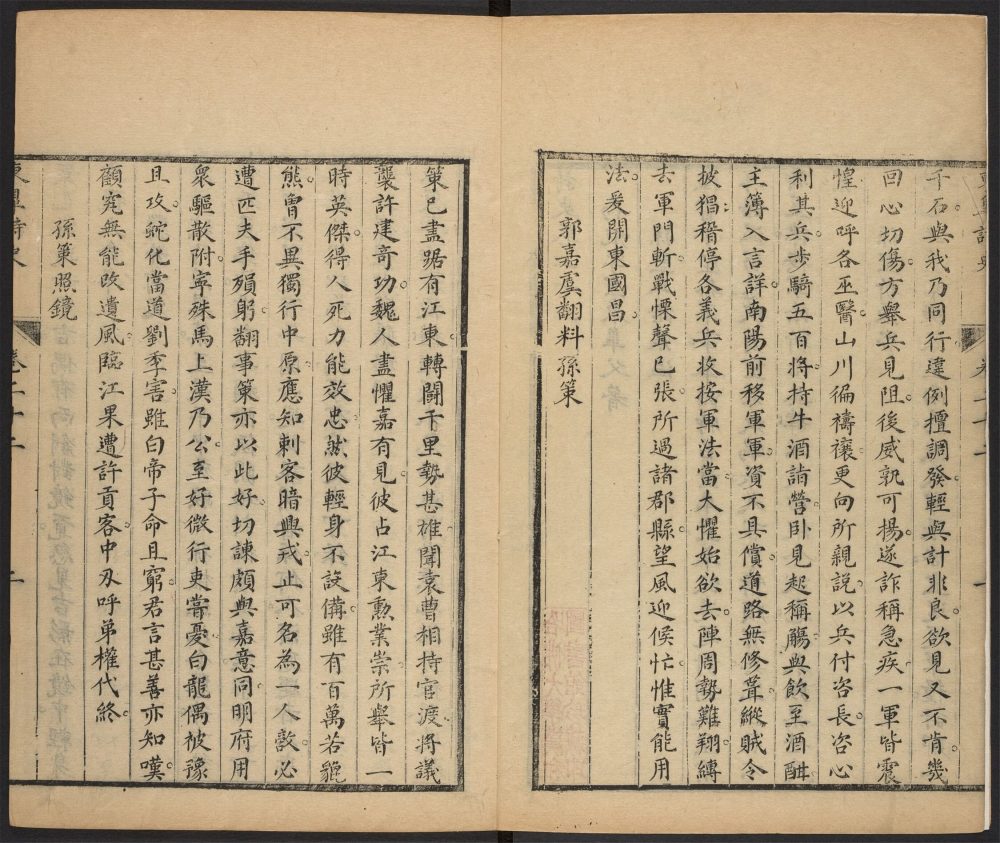 千石與我乃同行違例擅調發輕與計非良欲見又不肯幾
回心切傷方舉兵見阻後威孰可揚遂詐稱急疾一軍皆震
惶迎呼各巫醫山川徧禱禳更向所親說以兵付咨長咨心
利其兵步騎五百將持牛酒詣營臥見起稱觴與飲至酒酣
主簿入言詳南陽前移軍軍資不具償道路無修葺縱賊令
披猖稽停各義兵收按軍法當大懼始欲去陣周勢難翔縛
去軍門斬戰慄聲已張所過諸郡縣望風迎候忙惟實能用
法爰開東國昌
郭嘉虞翻料孫策
策已盡踞有江東轉鬬千里勢甚雄聞袁曹相持官渡將議
襲許建奇功魏人盡懼嘉有見彼占江東勲業崇所舉皆一
時英傑得人死力能效忠然彼輕身不設備雖有百萬若貔
熊曾不異獨行中原應知刺客暗興戎止可名為一人敵必
遭匹夫手殞躬翻事策亦以此好切諫頗與嘉意同明府用
衆驅散附寧殊馬上漢乃公至好微行吏嘗憂白龍偶被豫
且攻蛇化當道劉季害雖白帝子命且窮君言甚善亦知嘆
顧究無能改遺風臨江果遭許貢客中刃呼弟權代終
孫策照鏡
卷二十二
二